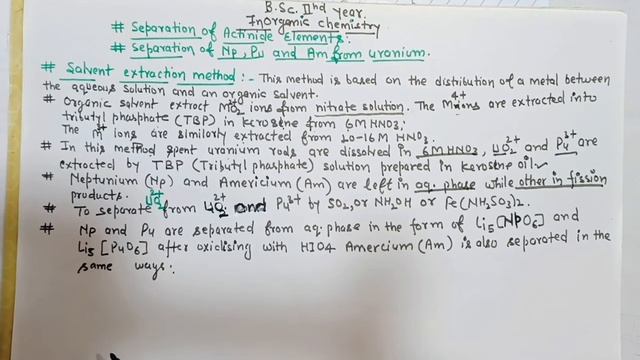 B.Sc. IInd year.
Inorganic chemistry
# Separation of Actinide Elements:
# Separation of Np, Pu and Am from uranium.
# Salvent extraction method:- This method is based on the distribution of a metal between
the aqueous solution and an organic salvent.
# Organic solvent extract MO2²⁺ ions from nitrate solution. The M⁴⁺ ions are extracted into
tributyl phasphate (TBP) in kerosene from 6M HNO3.
The M³⁺ ions are similorly extracted from 10-16M HNO3.
# In this method spent uranium rods are dissolved in 6M HNO3, UO2²⁺ and Pu³⁺ are
extracted by TBP (Tributyl phasphate) solution prepared in kerosine oil
# Neptunium (Np) and Americium (Am) are left in aq. phase while other in fission
products.
# To separate from UO2²⁺ and Pu³⁺ by SO2, or NH2OH or Fe(NH2SO3)2.
# Np and Pu are separated from aq. phase in the form of Li5[NpO6] and
Li5[PuO6] after oxidising with HIO4 Amercium (Am) is also separated in the
same ways: